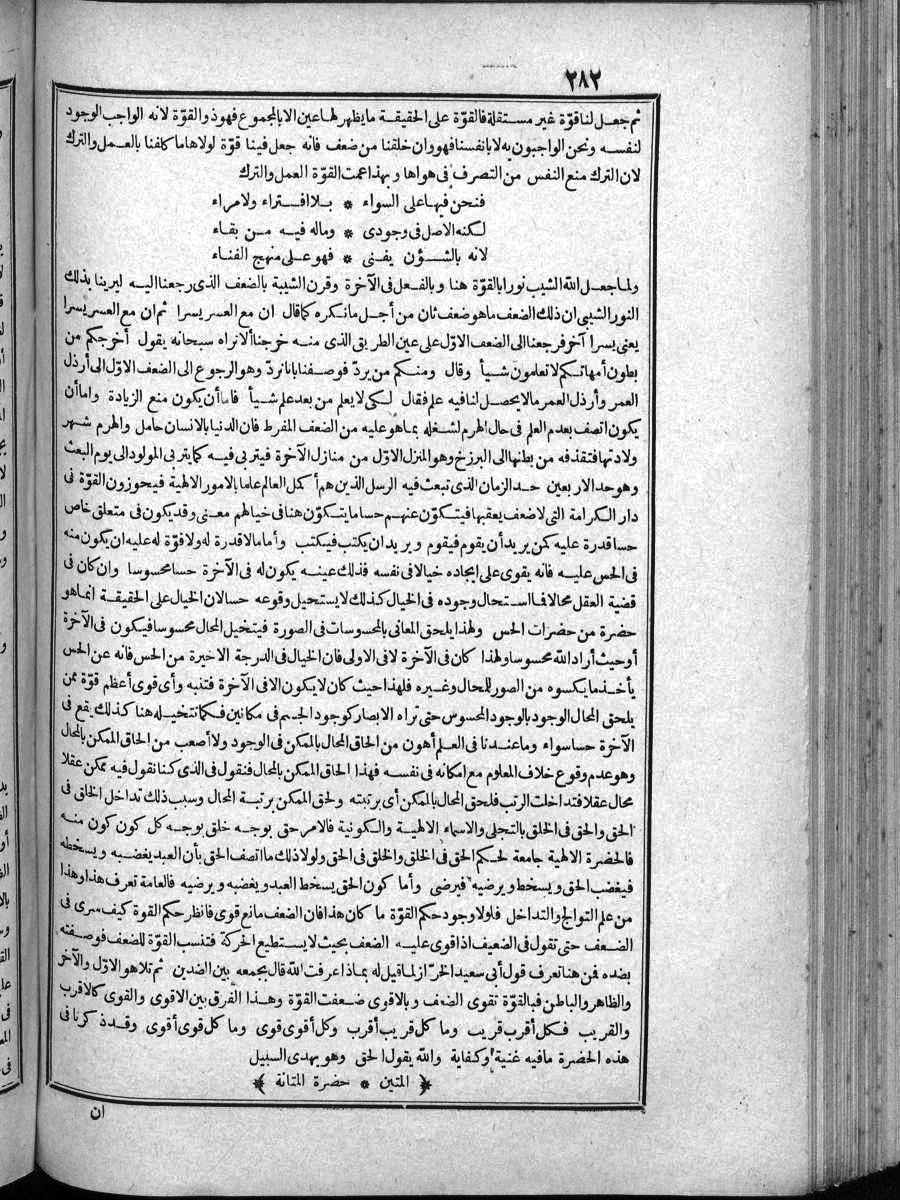 ٢٨٢
ثم جعل لنا قوّة غير مستقلة فالقوّة على الحقيقة ما يظهر لها عين الا بالمجموع فهو ذو القوة لانه الواجب الوجود
لنفسه ونحن الواجبون به لا بانفسنا فهو وان خلقنا من ضعف فانه جعل فينا قوّة لولاها ما كلفنا بالعمل والترك
لان الترك منع النفس من التصرف فى هواها وبهذا عمت القوّة العمل والترك
فنحن فيها على السواء * بلا افتراء ولا مراء
لكنه الاصل فى وجودى * وماله فيه من بقاء
لانه بالشؤن يفنى * فهو على منهج الفناء
ولما جعل الله الشيب نورا بالقوّة هنا وبالفعل فى الآخرة وقرن الشيبة بالضعف الذى رجعنا اليه ليرينا بذلك
النور الشيبى ان ذلك الضعف ما هو ضعف ثان من أجل ما نكره كما قال ان مع العسر يسرا ثم ان مع العسر يسرا
يعنى يسرا آخر فرجعنا الى الضعف الاوّل على عين الطريق الذى منه خرجنا ألا نراه سبحانه يقول أخرجكم من
بطون أمهاتكم لا تعلمون شيأ وقال ومنكم من يردّ فوصفنا بانا نردّ وهو الرجوع الى الضعف الاوّل الى أرذل
العمر وأرذل العمر مالا يحصل لنا فيه علم فقال لكى لا يعلم من بعد علم شيأ فاما أن يكون منع الزيادة واما أن
يكون اتصف بعدم العلم فى حال الهرم لشغله بما هو عليه من الضعف المفرط فان الدنيا بالانسان حامل والهرم شهر
ولادتها فتقذفه من بطنها الى البرزخ وهو المنزل الاوّل من منازل الآخرة فيتربى فيه كما يتربى المولود الى يوم البعث
وهو حد الاربعين حد الزمان الذى تبعث فيه الرسل الذين هم أكمل العالم علما بالامور الالهية فيحوزون القوّة فى
دار الكرامة التى لا ضعف يعقبها فيتكوّن عنهم حسا ما يتكوّن هنا فى خيالهم معنى وقد يكون فى متعلق خاص
حسا قدرة عليه كمن يريد أن يقوم فيقوم ويريد ان يكتب فيكتب وأما مالا قدرة له ولا قوّة له عليه ان يكون منه
فى الحس عليه فانه يقوى على ايجاده خيالا فى نفسه فذلك عينه يكون له فى الآخرة حسا محسوسا وان كان فى
قضية العقل محالا فما استحال وجوده فى الخيال كذلك لا يستحيل وقوعه حسا لان الخيال على الحقيقة انما هو
حضرة من حضرات الحس ولهذا يلحق المعانى بالمحسوسات فى الصورة فيتخيل المحال محسوسا فيكون فى الآخرة
أو حيث أراد الله محسوسا ولهذا كان فى الآخرة لا فى الاولى فان الخيال فى الدرجة الاخيرة من الحس فانه عن الحس
يأخذ ما يكسوه من الصور للمحال وغيره فلهذا حيث كان لا يكون الا فى الآخرة فتنبه وأى قوى أعظم قوّة ممن
يلحق المحال الوجود بالوجود المحسوس حتى تراه الابصار كوجود الجسم فى مكانين فكما نتخيله هنا كذلك يقع فى
الآخرة حسا سواء وما عندنا فى العلم أهون من الحاق المحال بالممكن فى الوجود ولا أصعب من الحاق الممكن بالمحال
وهو عدم وقوع خلاف المعلوم مع امكانه فى نفسه فهذا الحاق الممكن بالمحال فنقول فى الذى كنا نقول فيه ممكن عقلا
محال عقلا فتداخلت الرتب فلحق المحال بالممكن أى برتبته ولحق الممكن برتبة المحال وسبب ذلك تداخل الخلق فى
الحق والحق فى الخلق بالتجلى والاسماء الالهية والكونية فالامر حق بوجه خلق بوجه كل كون كون منه
فالحضرة الالهية جامعة لحكم الحق فى الخلق والخلق فى الحق ولولا ذلك ما اتصف الحق بأن العبد يغضبه ويسخطه
فيغضب الحق ويسخط ويرضيه فيرضى وأما كون الحق يسخط العبد ويغضبه ويرضيه فالعامة تعرف هذا وهذا
من علم التوالج والتداخل فلولا وجود حكم القوّة ما كان هذا فان الضعف مانع قوى فانظر حكم القوة كيف سرى فى
الضعف حتى تقول فى الضعيف اذا قوى عليه الضعف بحيث لا يستطيع الحركة فتنسب القوّة للضعف فوصفته
بضده فمن هنا تعرف قول أبى سعيد الخرّاز لما قيل له بماذا عرفت الله قال بجمعه بين الضدين ثم تلا هو الاوّل والآخر
والظاهر والباطن فبالقوّة تقوى الضعف وبالاقوى ضعفت القوّة وهذا الفرق بين الاقوى والقوى كالاقرب
والقريب فكل أقرب قريب وما كل قريب أقرب وكل أقوى قوى وما كل قوى أقوى وقد ذكرنا فى
هذه الحضرة ما فيه غنية وكفاية والله يقول الحق وهو يهدى السبيل
﴿ المتين * حضرة المتانة ﴾
ان